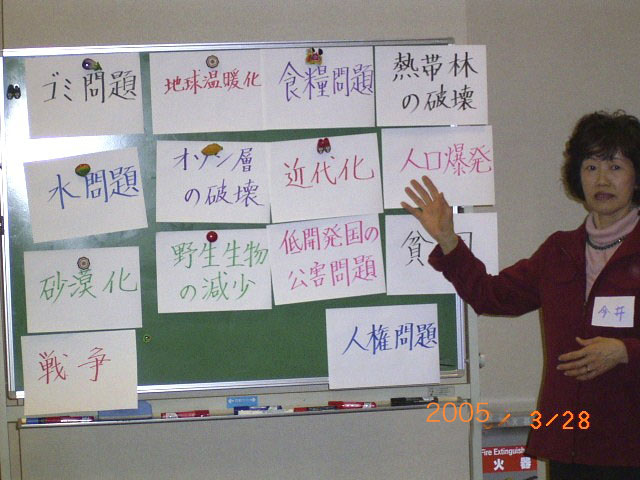 ゴミ問題
地球温暖化
食糧問題
熱帯林
の破壊
水問題
オゾン層
の破壊
近代化
人口爆発
砂漠化
野生生物
の減少
低開発国の
公害問題
貧
戦争
人権問題
今井
2005/3/28
Fire Extinguish
火